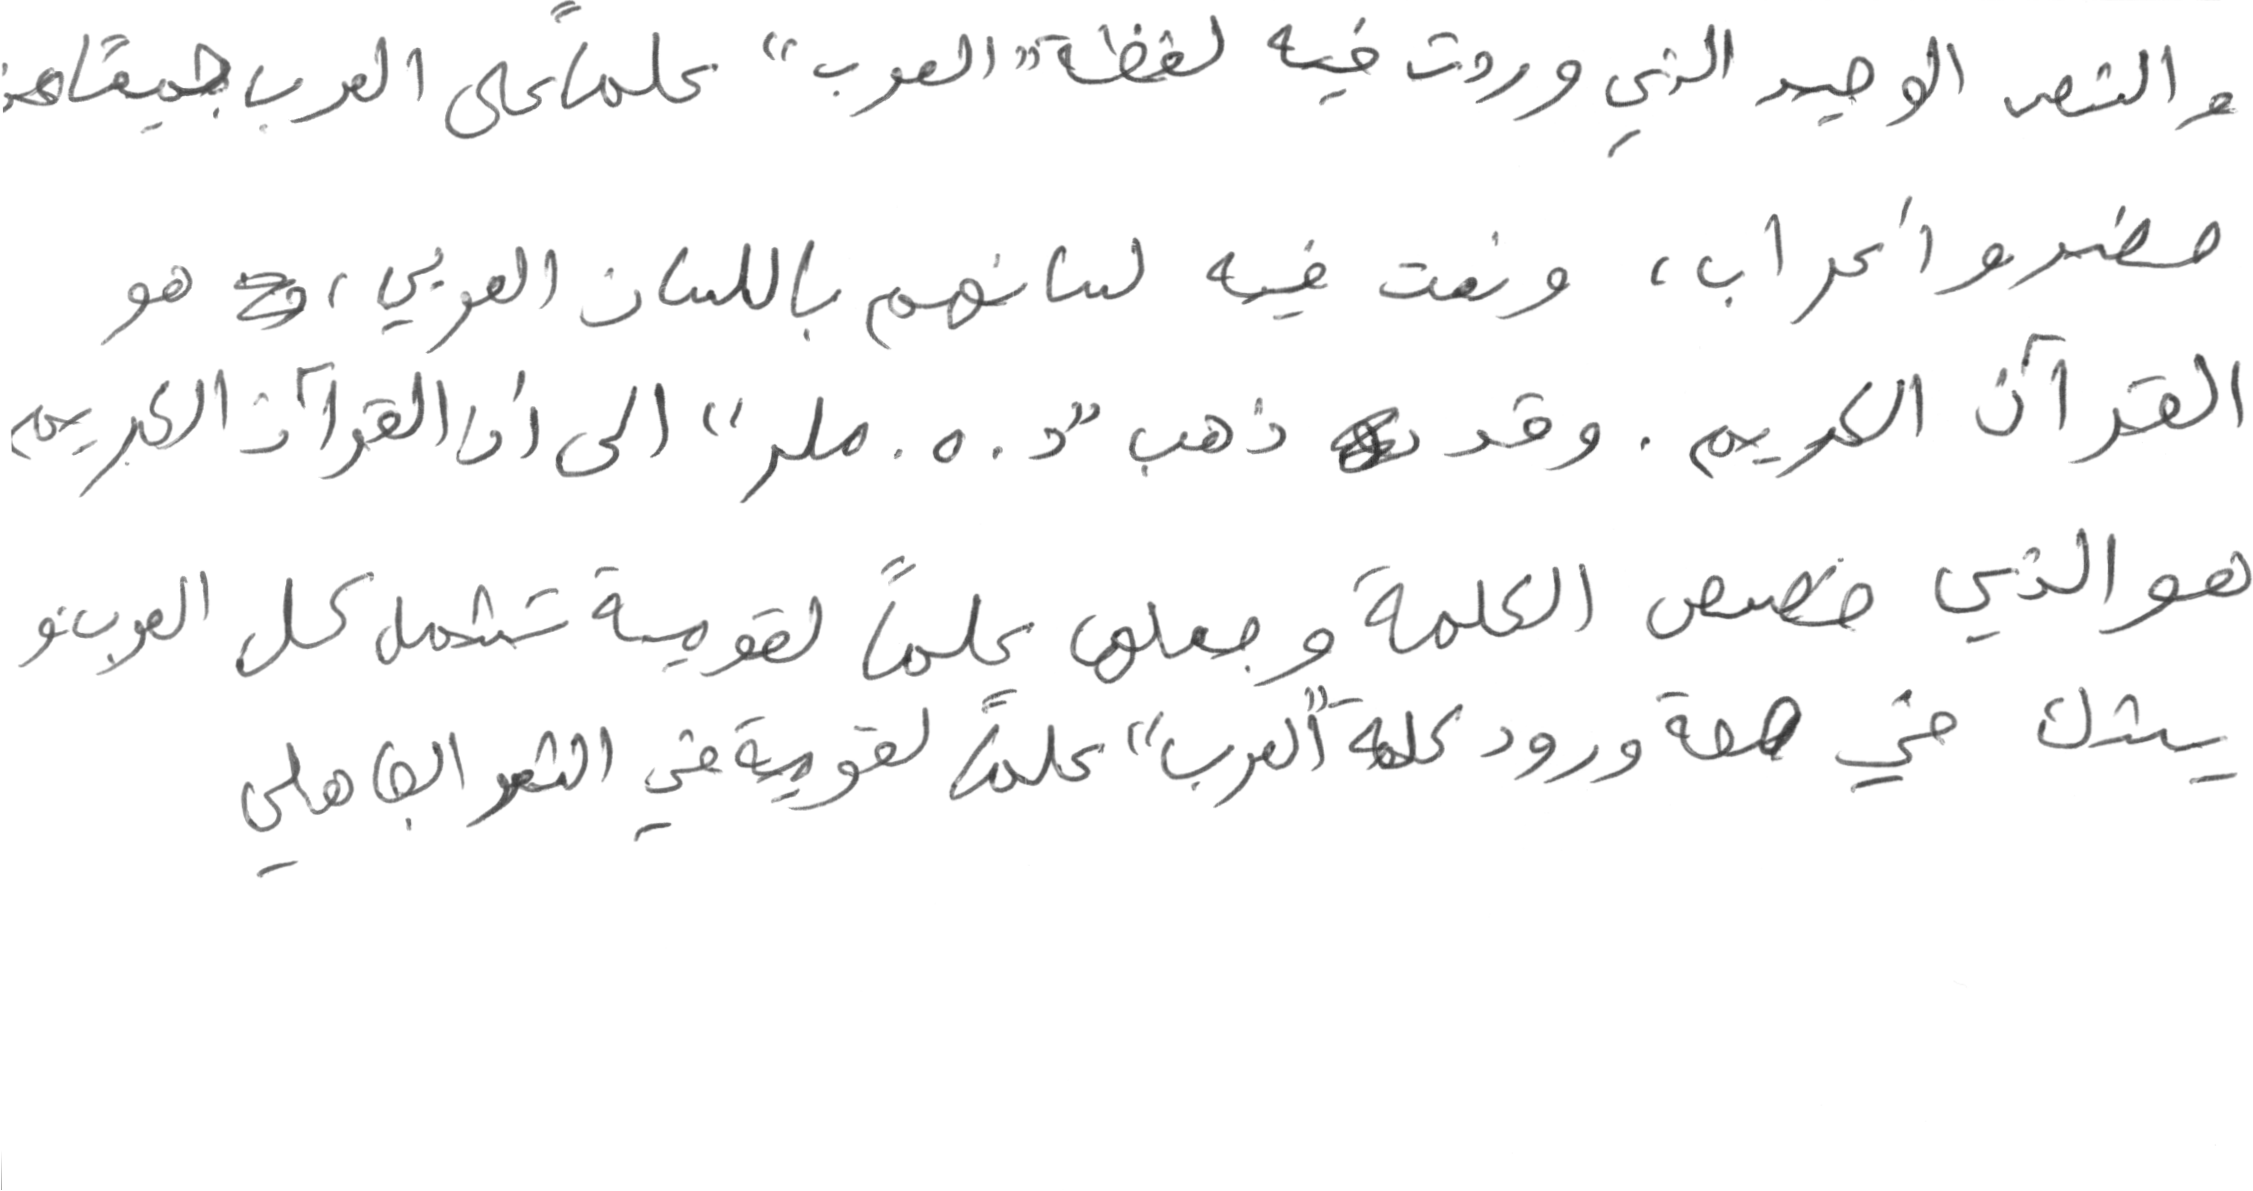 والشعر الوحيد الذي وردت فيه لفظة "العرب" علماً على العرب جميعًا من
حضر وأعراب، ونعت فيه لسانهم باللسان العربي، هو
القرآن الكريم. وقد ذهب "د. ه. ملر" الى أن القرآن الكريم
هو الذي خصص الكلمة وجعلها علماً لقومية تشمل كل العرب. و
يشك في صحة ورود كلمة "العرب" علماً لقومية في الشعر الجاهلي